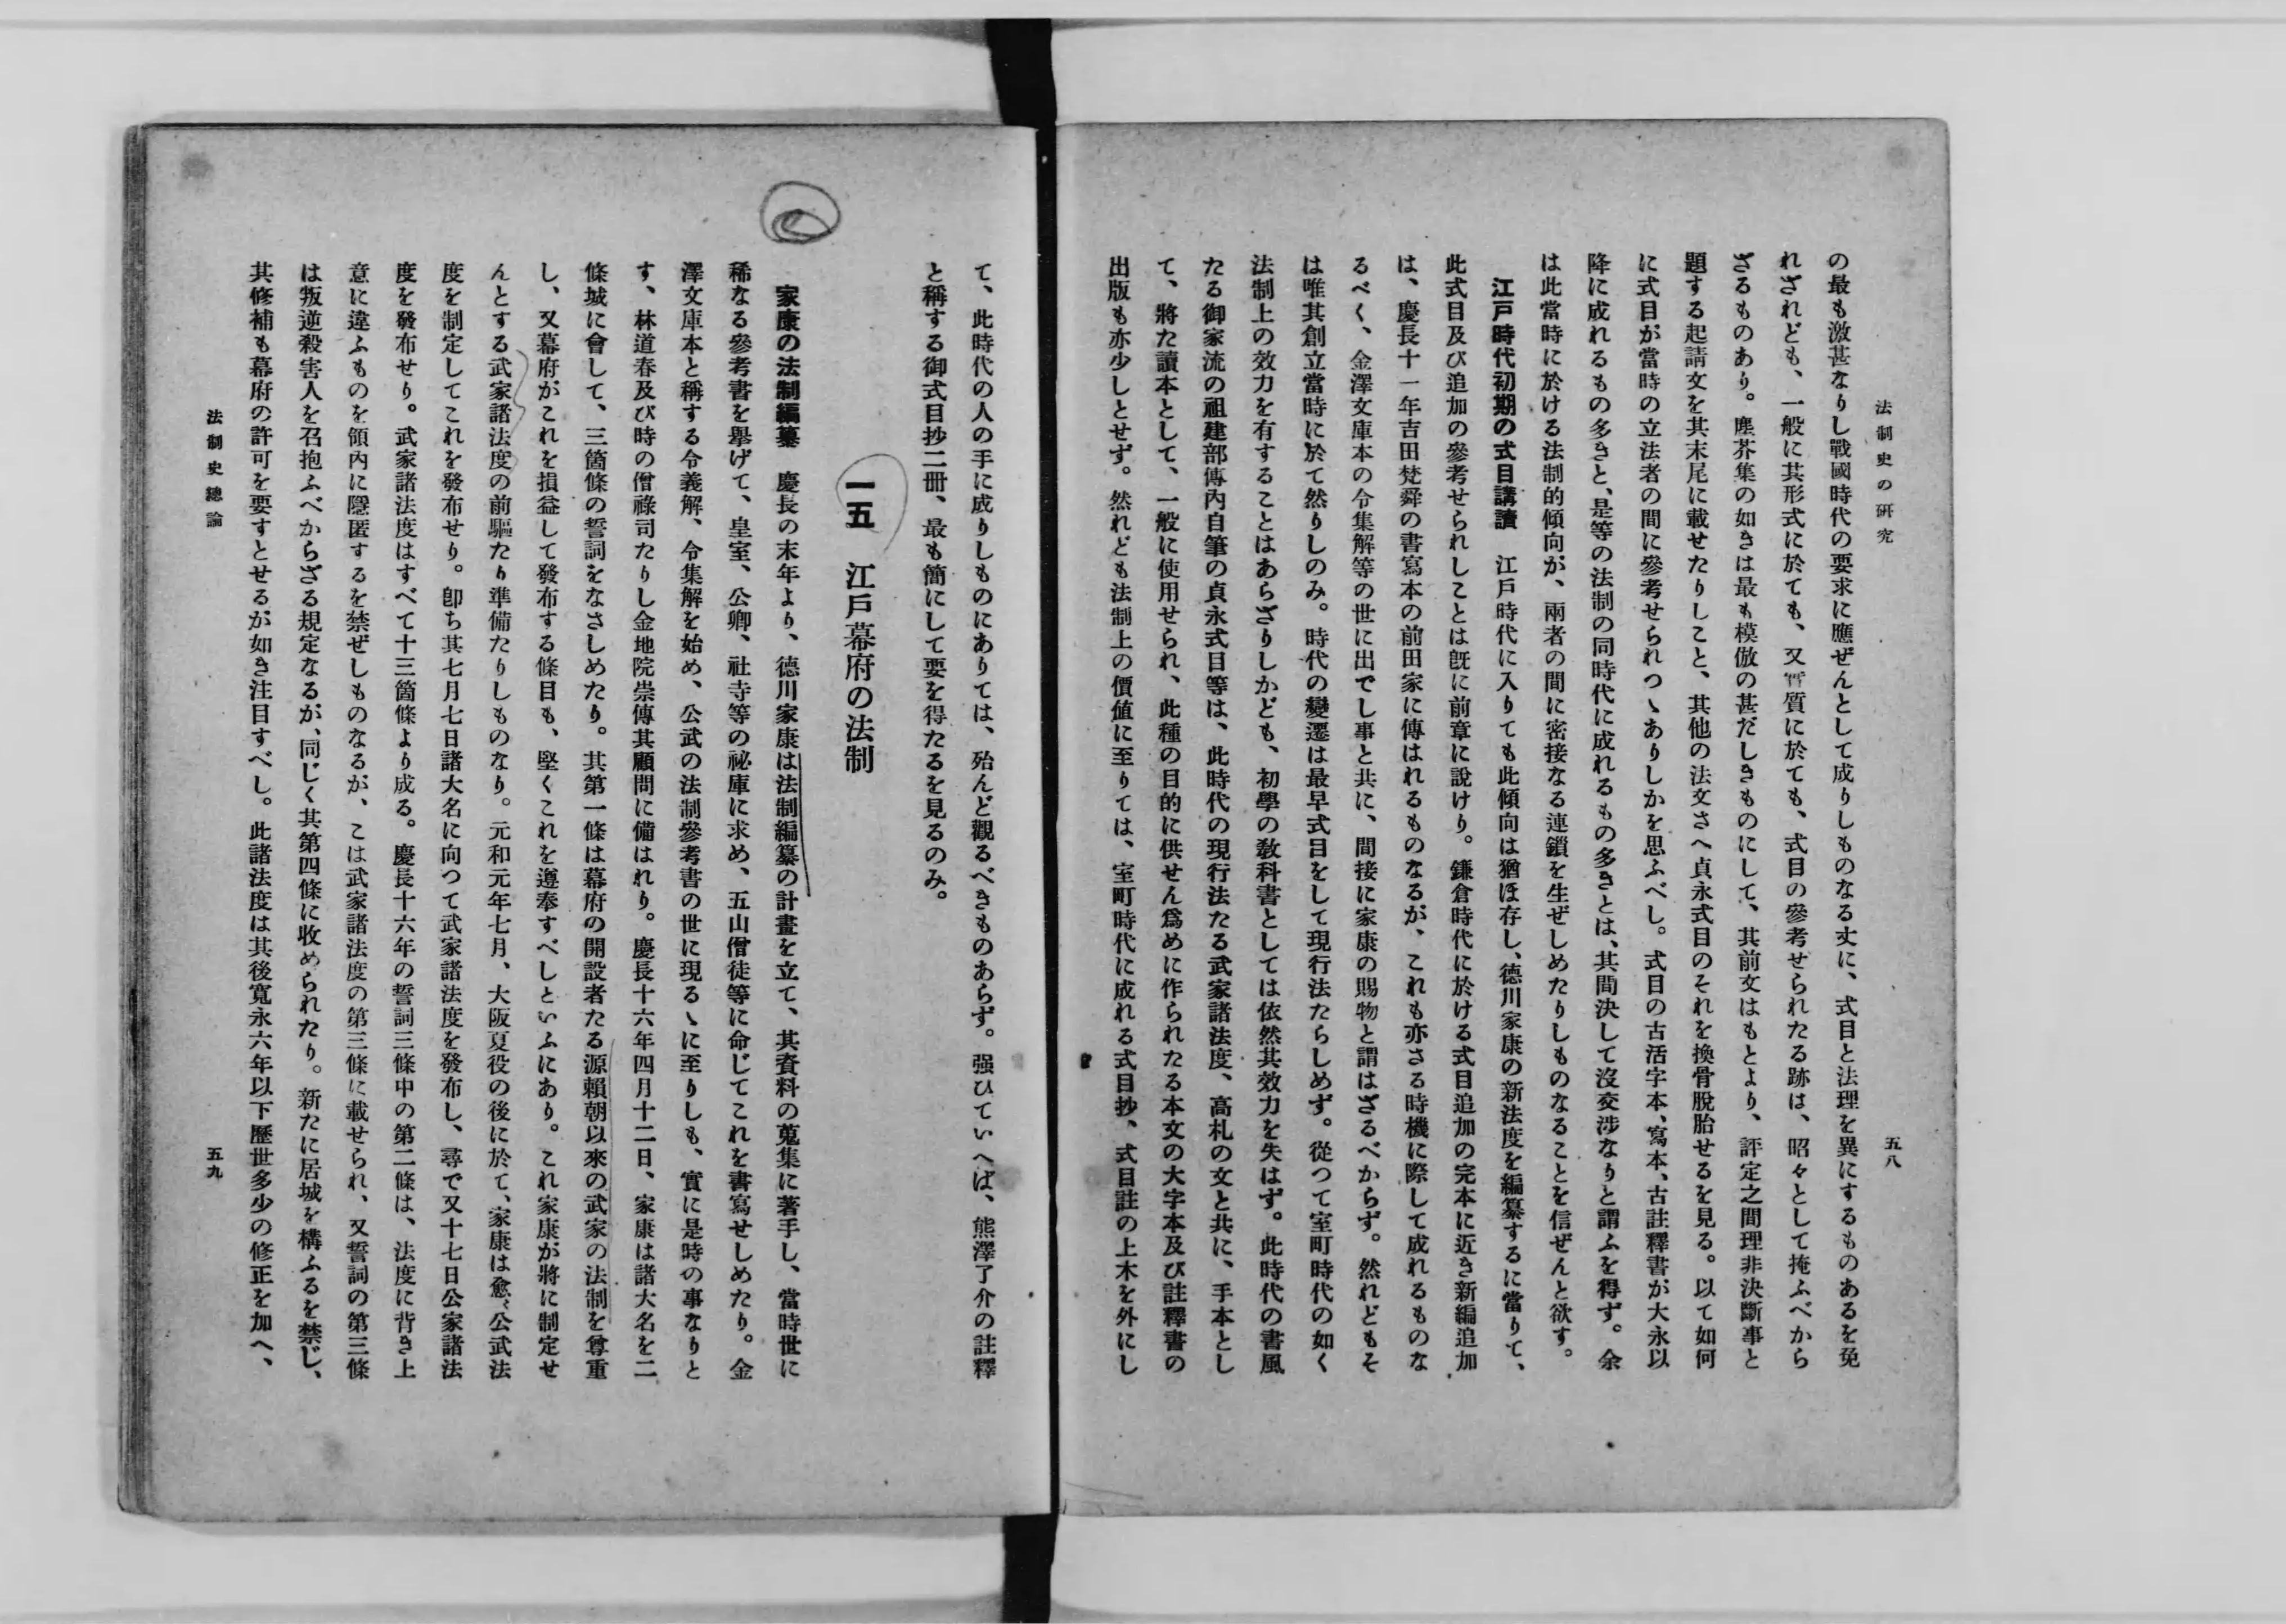 法制史の研究
五八
の最も激甚なりし戰國時代の要求に應ぜんとして成りしものなる丈に、式目と法理を異にするものあるを免
れざれども、一般に其形式に於ても、又實質に於ても、式目の參考せられたる跡は、昭々として掩ふべから
ざるものあり。塵芥集の如きは最も模倣の甚だしきものにして、其前文はもとより、評定之間理非決斷事と
題する起請文を其末尾に載せたりしこと、其他の法文さへ貞永式目のそれを換骨脫胎せるを見る。以て如何
に式目が當時の立法者の間に參考せられつゝありしかを思ふべし。式目の古活字本、寫本、古註釋書が大永以
降に成れるもの多きと、是等の法制の同時代に成れるもの多きとは、其間決して沒交涉なりと謂ふを得ず。余
は此當時に於ける法制的傾向が、兩者の間に密接なる連鎖を生ぜしめたりしものなることを信ぜんと欲す。
江戶時代初期の式目講讀　江戶時代に入りても此傾向は猶ほ存し、德川家康の新法度を編纂するに當りて、
此式目及び追加の參考せられしことは旣に前章に說けり。鎌倉時代に於ける式目追加の完本に近き新編追加
は、慶長十一年吉田梵舜の書寫本の前田家に傳はれるものなるが、これも亦さる時機に際して成れるものな
るべく、金澤文庫本の令集解等の世に出でし事と共に、間接に家康の賜物と謂はざるべからず。然れどもそ
は唯其創立當時に於て然りしのみ。時代の變遷は最早式目をして現行法たらしめず。從つて室町時代の如く
法制上の效力を有することはあらざりしかども、初學の敎科書としては依然其效力を失はず。此時代の書風
たる御家流の祖建部傳內自筆の貞永式目等は、此時代の現行法たる武家諸法度、高札の文と共に、手本とし
て、將た讀本として、一般に使用せられ、此種の目的に供せん爲めに作られたる本文の大字本及び註釋書の
出版も亦少しとせず。然れども法制上の價値に至りては、室町時代に成れる式目抄、式目註の上木を外にし
て、此時代の人の手に成りしものにありては、殆んど觀るべきものあらず。强ひていへば、熊澤了介の註釋
と稱する御式目抄二冊、最も簡にして要を得たるを見るのみ。
一五　江戶幕府の法制
家康の法制編纂　慶長の末年より、德川家康は法制編纂の計畫を立て、其資料の蒐集に著手し、當時世に
稀なる參考書を擧げて、皇室、公卿、社寺等の祕庫に求め、五山僧徒等に命じてこれを書寫せしめたり。金
澤文庫本と稱する令義解、令集解を始め、公武の法制參考書の世に現るゝに至りしも、實に是時の事なりと
す、林道春及び時の僧祿司たりし金地院崇傳其顧問に備はれり。慶長十六年四月十二日、家康は諸大名を二
條城に會して、三箇條の誓詞をなさしめたり。其第一條は幕府の開設者たる源賴朝以來の武家の法制を尊重
し、又幕府がこれを損益して發布する條目も、堅くこれを遵奉すべしといふにあり。これ家康が將に制定せ
んとする武家諸法度の前驅たり準備たりしものなり。元和元年七月、大阪夏役の後に於て、家康は愈〻公武法
度を制定してこれを發布せり。卽ち其七月七日諸大名に向つて武家諸法度を發布し、尋で又十七日公家諸法
度を發布せり。武家諸法度はすべて十三箇條より成る。慶長十六年の誓詞三條中の第二條は、法度に背き上
意に違ふものを領內に隱匿するを禁ぜしものなるが、こは武家諸法度の第三條に載せられ、又誓詞の第三條
は叛逆殺害人を召抱ふべからざる規定なるが、同じく其第四條に收められたり。新たに居城を構ふるを禁じ、
其修補も幕府の許可を要すとせるが如き注目すべし。此諸法度は其後寬永六年以下歷世多少の修正を加へ、
法制史總論
五九